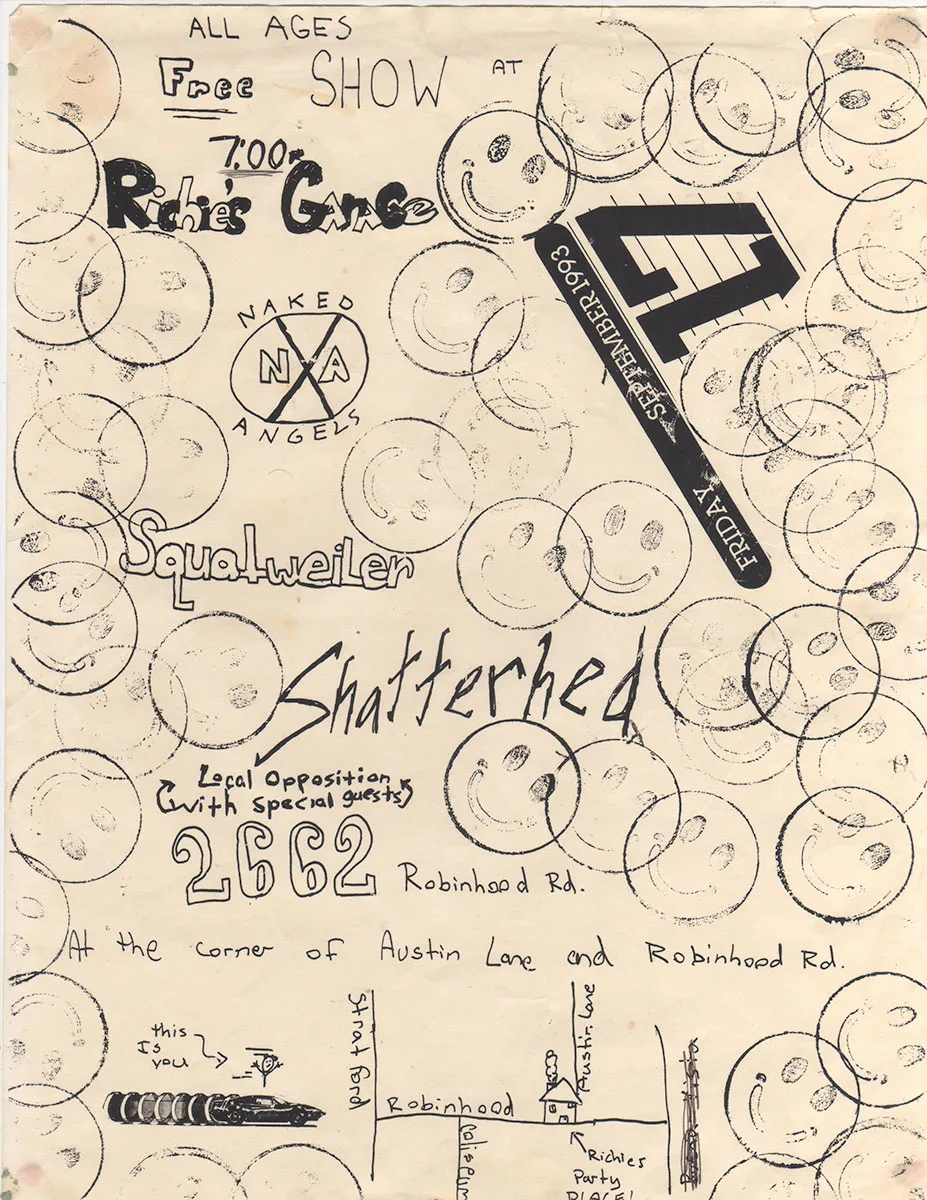 ALL AGES
Free SHOW AT
7:00
Richie's GaRAGe
17
FRIDAY SEPTEMBER 1993
NAKED
N A
ANGELS
Squatweiler
Shatterhed
Local Opposition
(with special guests)
2662 Robinhood Rd.
At the corner of Austin Lane and Robinhood Rd.
this
Is
you
Stratford
Robinhood
Coliseum
Austin Lane
Richies
Party
PLACE!